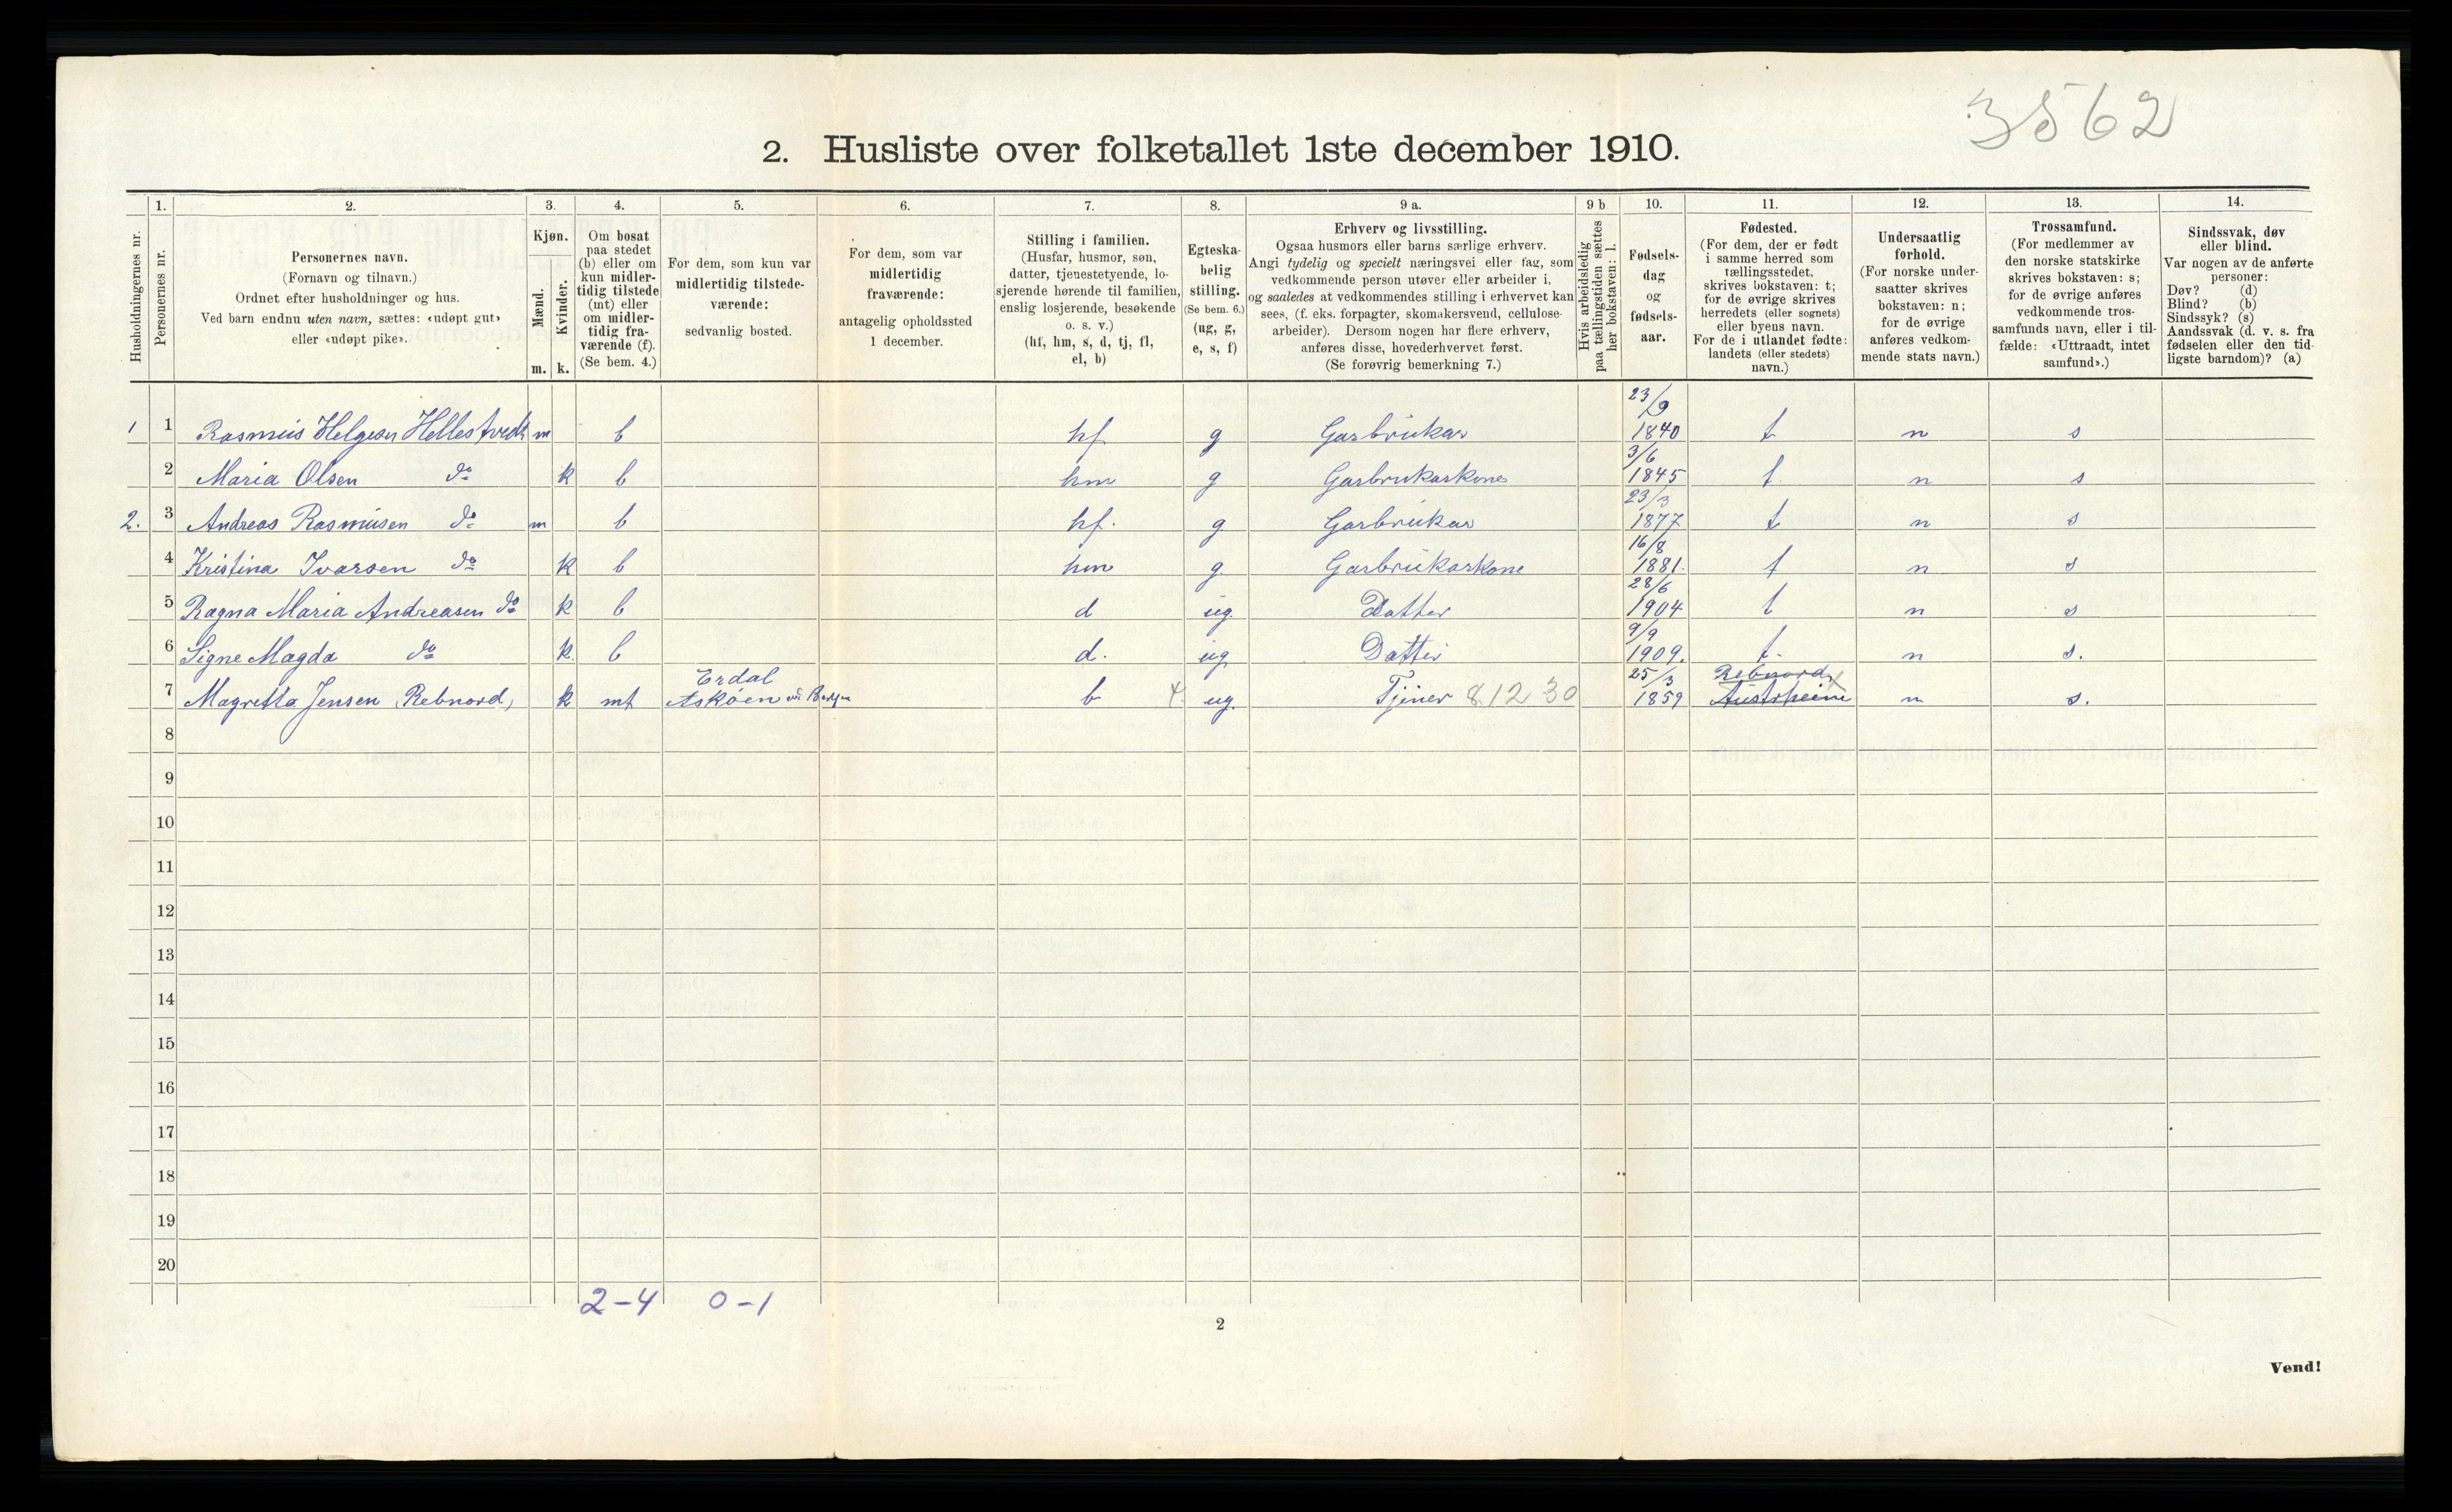 3562
2. Husliste over folketallet 1ste december 1910.
Husholdningernes nr.
1.
Personernes nr.
2.
Personernes navn.
(Fornavn og tilnavn.)
Ordnet efter husholdninger og hus.
Ved barn endnu uten navn, sættes: «udøpt gut»
eller «udøpt pike».
3.
Kjøn.
Mænd.
Kvinder.
m. k.
4.
Om bosat
paa stedet
(b) eller om
kun midler-
tidig tilstede
(mt) eller
om midler-
tidig fra-
værende (f).
(Se bem. 4.)
5.
For dem, som kun var
midlertidig tilstede-
værende:
sedvanlig bosted.
6.
For dem, som var
midlertidig
fraværende:
antagelig opholdssted
1 december.
7.
Stilling i familien.
(Husfar, husmor, søn,
datter, tjenestetyende, lo-
sjerende hørende til familien,
enslig losjerende, besøkende
o. s. v.)
(hf, hm, s, d, tj, fl,
el, b)
8.
Egteska-
belig
stilling.
(Se bem. 6.)
(ug, g,
e, s, f)
9 a.
Erhverv og livsstilling.
Ogsaa husmors eller barns særlige erhverv.
Angi tydelig og specielt næringsvei eller fag, som
vedkommende person utøver eller arbeider i,
og saaledes at vedkommendes stilling i erhvervet kan
sees, (f. eks. forpagter, skomakersvend, cellulose-
arbeider). Dersom nogen har flere erhverv,
anføres disse, hovederhvervet først.
(Se forøvrig bemerkning 7.)
9 b
Hvis arbeidsledig
paa tællingstiden sættes
her bokstaven: l.
10.
Fødsels-
dag
og
fødsels-
aar.
11.
Fødested.
(For dem, der er født
i samme herred som
tællingsstedet,
skrives bokstaven: t;
for de øvrige skrives
herredets (eller sognets)
eller byens navn.
For de i utlandet fødte:
landets (eller stedets)
navn.)
12.
Undersaatlig
forhold.
(For norske under-
saatter skrives
bokstaven: n;
for de øvrige
anføres vedkom-
mende stats navn.)
13.
Trossamfund.
(For medlemmer av
den norske statskirke
skrives bokstaven: s;
for de øvrige anføres
vedkommende tros-
samfunds navn, eller i til-
fælde: «Uttraadt, intet
samfund».)
14.
Sindssvak, døv
eller blind.
Var nogen av de anførte
personer:
Døv? (d)
Blind? (b)
Sindssyk? (s)
Aandssvak (d. v. s. fra
fødselen eller den tid-
ligste barndom)? (a)
1 1 Rasmus Helgesen Hellestvedt m b hf g Garbrukar 23/9 1840 t n s
2 Maria Olsen do k b hm g Garbrukarkone 3/6 1845 t n s
2. 3 Andreas Rasmusen do m b hf. g Garbrukar 23/3 1877 t n s
4 Kristina Ivarsen do k b hm g. Garbrukarkone 16/8 1881. t n s
5 Ragna Maria Andreasen do k b d ug. Datter 28/6 1904 t n s
6 Signe Magda do k. b d. ug Datter 9/9 1909. t. n s.
7 Magretta Jensen Rebnord, k mt Erdal Askøen ved Bergen b 4. ug. Tjener 8.12 30 25/3 1859 Rebnord x Austrheim n s.
8
9
10
11
12
13
14
15
16
17
18
19
20
2-4 0-1
2
Vend!